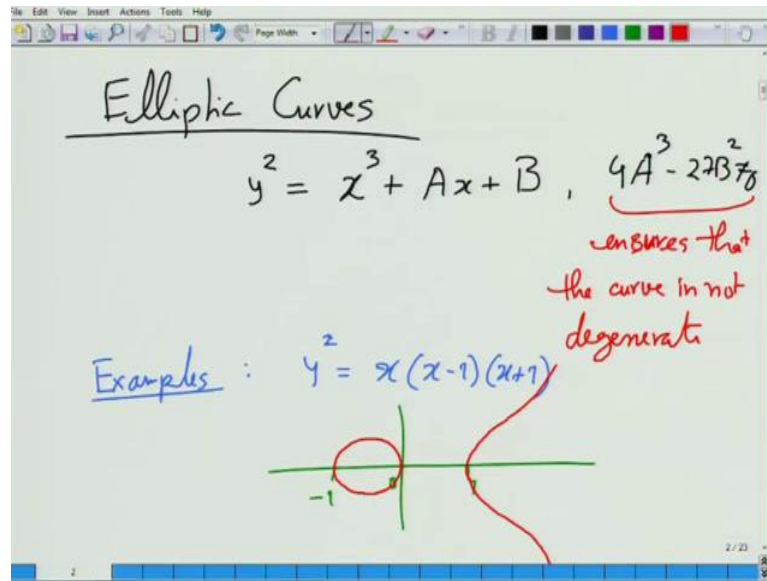 File Edit View Insert Actions Tools Help
Page Width
B I
Elliptic Curves
y² = x³ + Ax + B , 4A³ - 27B² ≠ 0
ensures that
the curve in not
degenerate
Examples : y² = x(x-1)(x+1)
-1 0 1
2 / 23
2